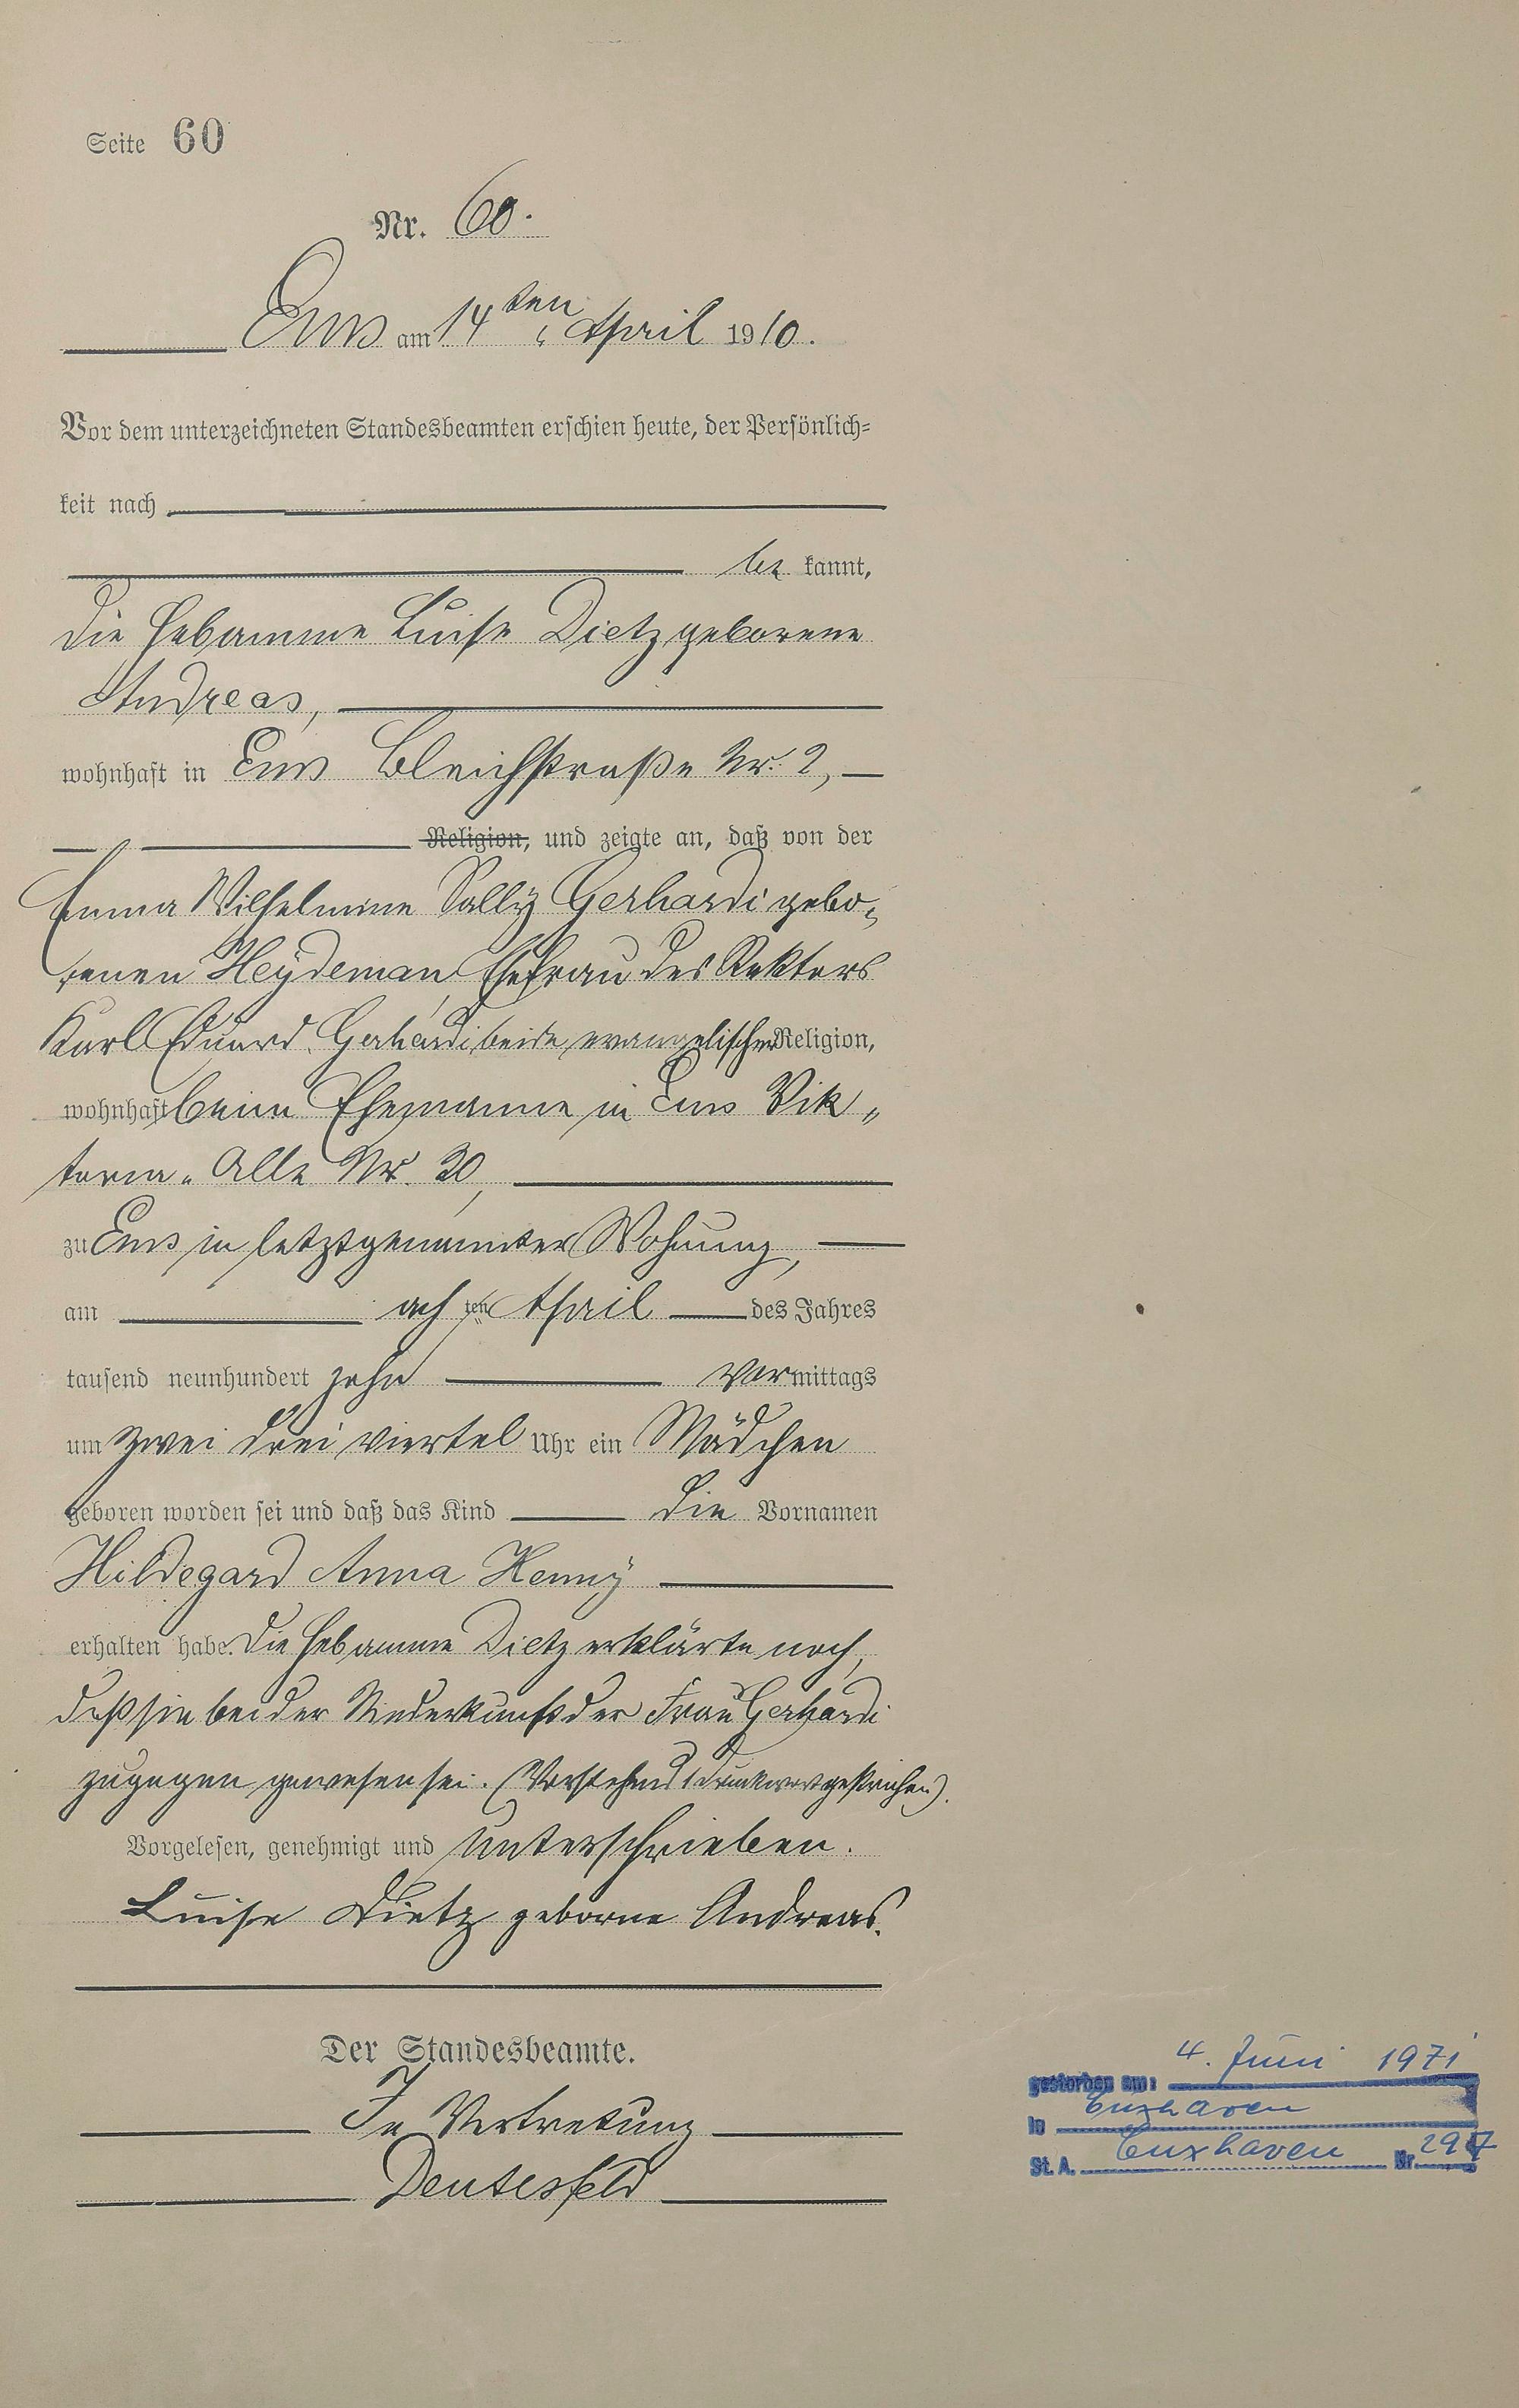 Seite 60
Nr. 60.
Ems am 14ten April 1910.
Vor dem unterzeichneten Standesbeamten erschien heute, der Persönlich=
keit nach
be kannt,
die Hebamme Luise Dietz geborene
Andreas,
wohnhaft in Ems Bleichstraße Nr. 2,
Religion, und zeigte an, daß von der
Emma Wilhelmine Sally Gerhardi gebo=
renen Heydeman, Ehefrau des Rektors
Karl Eduard Gerhardi, beide evangelischer Religion,
wohnhaft beim Ehemanne in Ems Vik=
toria-Alle Nr. 30,
zu Ems in letztgenannter Wohnung,
am achten April des Jahres
tausend neunhundert zehn Vormittags
um zwei drei viertel Uhr ein Mädchen
geboren worden sei und daß das Kind die Vornamen
Hildegard Anna Henny
erhalten habe. Die Hebamme Dietz erklärte noch,
daß sie bei der Niederkunft der Frau Gerhardi
zugegen gewesen sei. (Vorstehend 1 Druckwort gestrichen).
Vorgelesen, genehmigt und unterschrieben.
Luise Dietz geborne Andreas.
Der Standesbeamte.
In Vertretung
Deutesfeld
gestorben am: 4. Juni 1971
in Cuxhaven
St. A. Cuxhaven Nr.